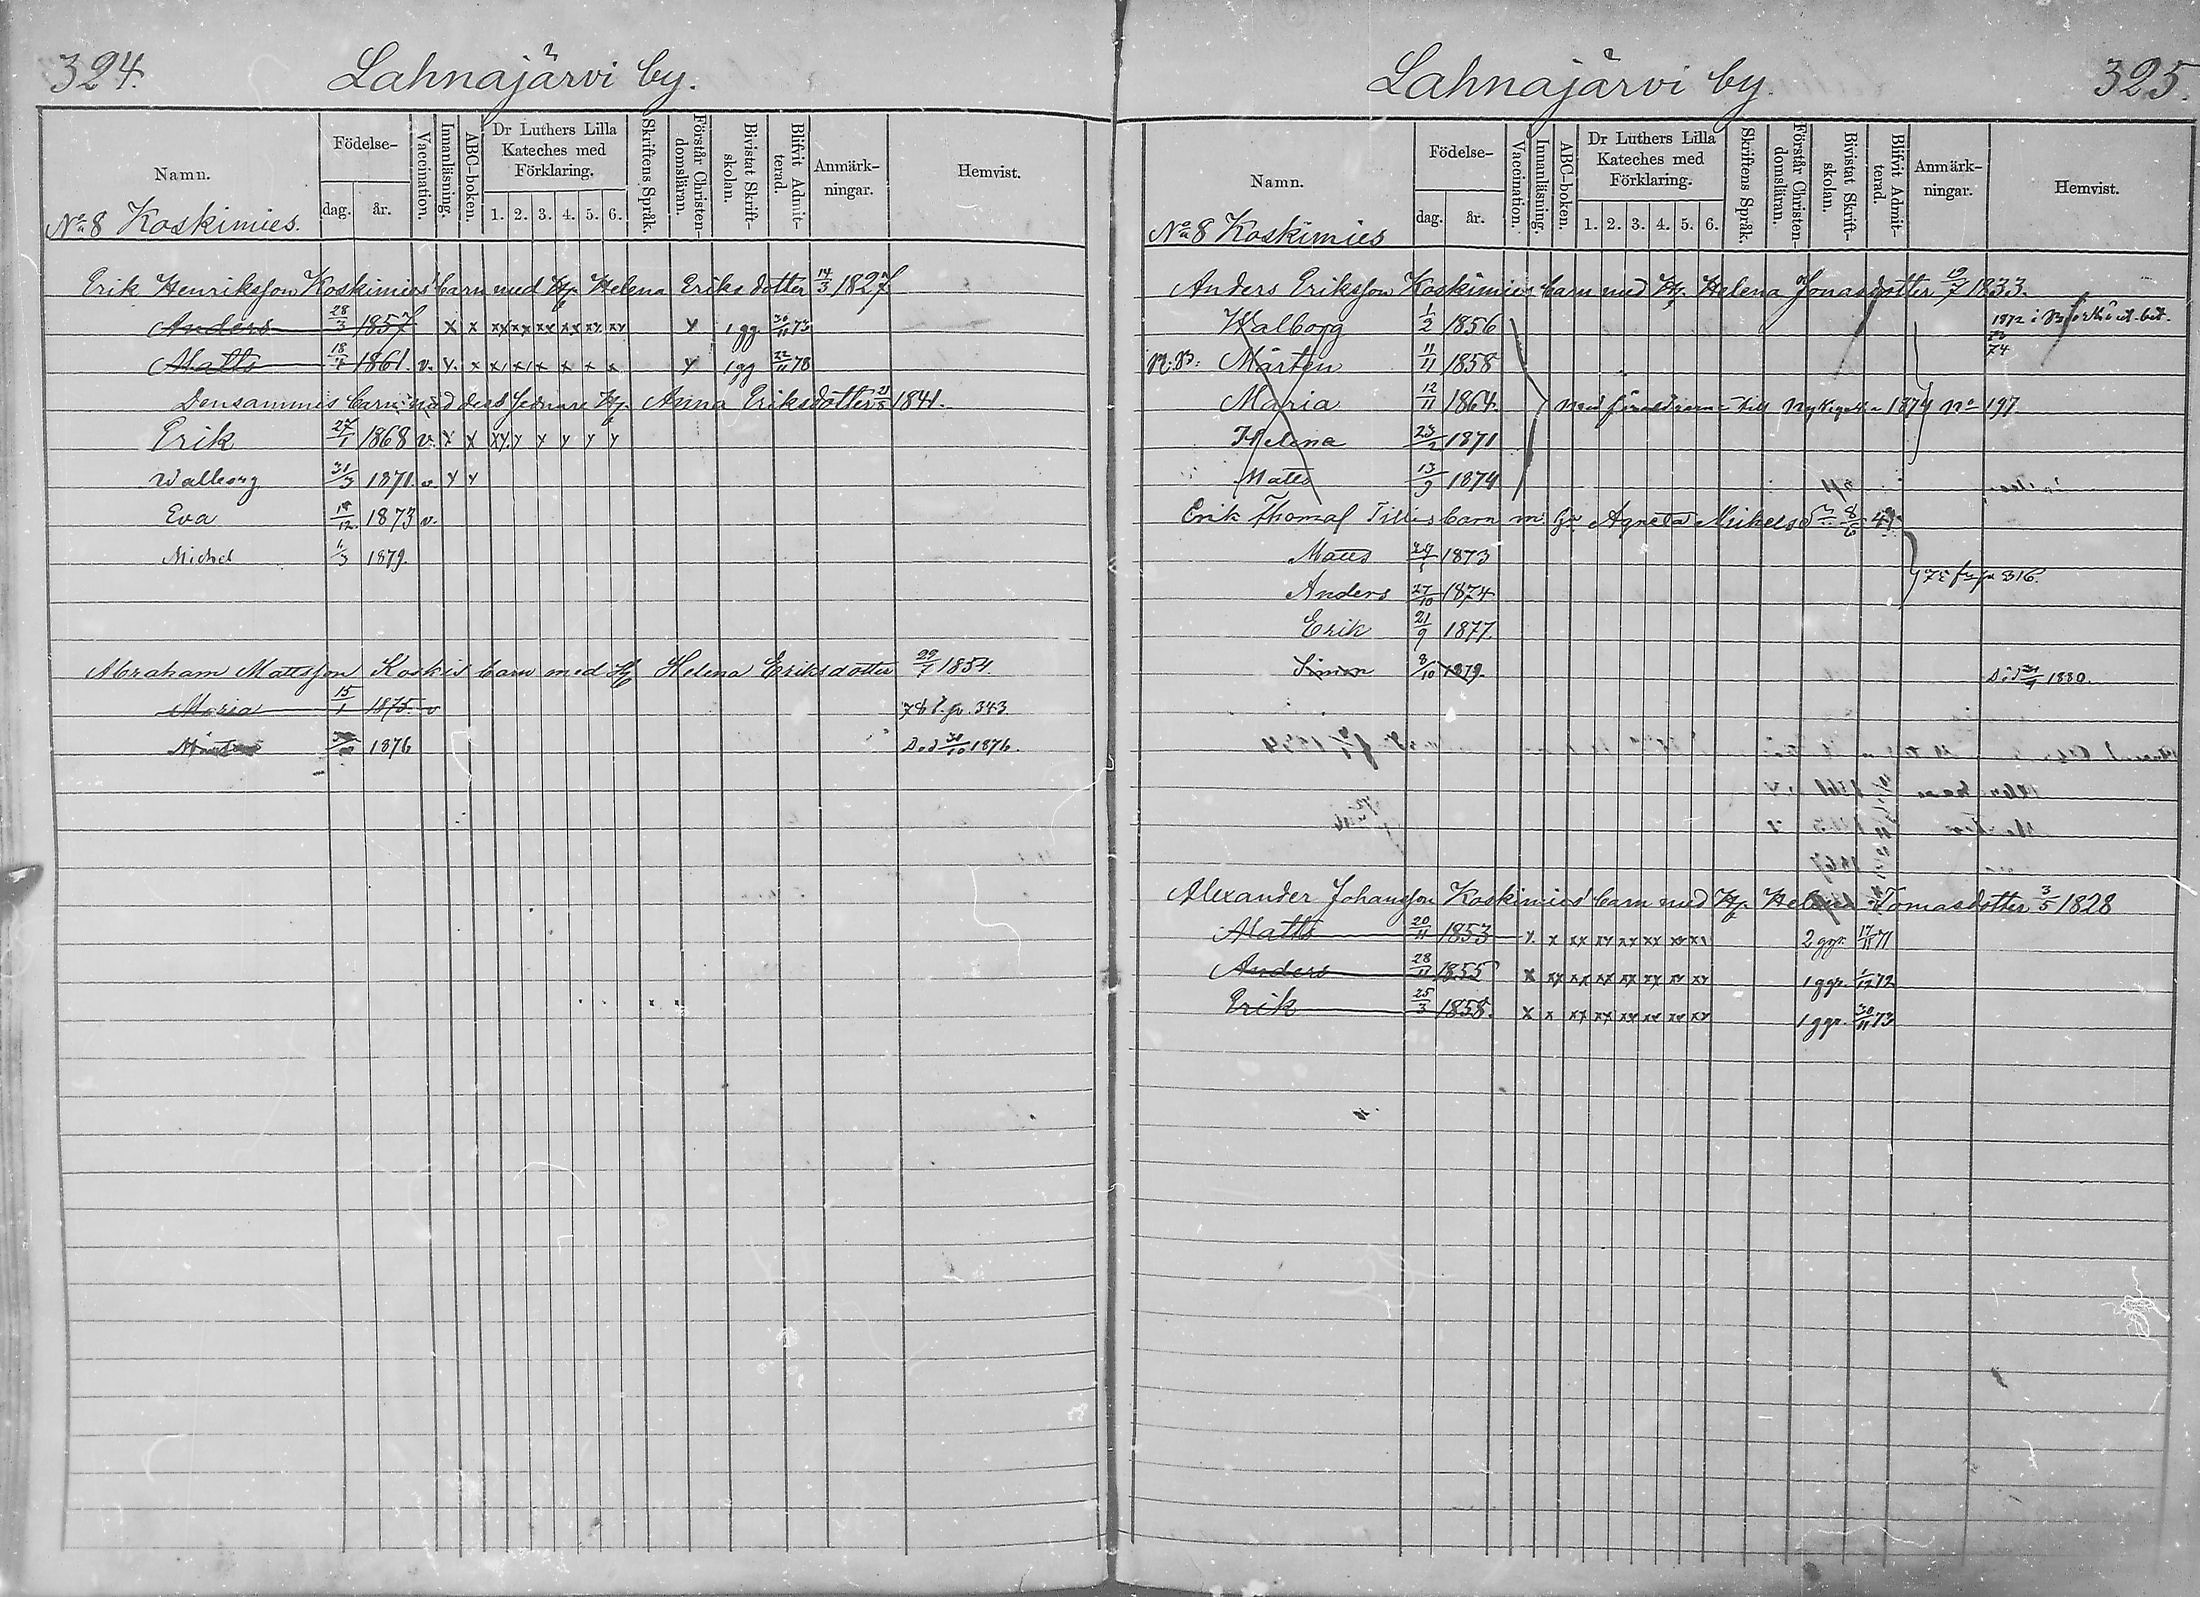 324.
Lahnajärvi by.
Namn.
Födelse-
dag.
år.
Vaccination.
Innanläsning.
ABC-boken.
Dr Luthers Lilla
Kateches med
Förklaring.
1. 2. 3. 4. 5. 6.
Skriftens Språk.
Förstår Christen-
domsläran.
Bivistat Skrift-
skolan.
Blifvit Admit-
terad.
Anmärk-
ningar.
Hemvist.
No 8 Koskimies.
Erik Henriksson Koskimies' barn med H. Helena Eriksdotter 14/3 1827
Anders 28/3 1857 x x xx xx xx xx xx xx x 1 gg 30/11 73
Matts 18/4 1861. v. x. x x x x x x x 1 gg 22/11 78
Densammes barn med dess sednare H. Anna Eriksdotter 1841.
Erik 27/1 1868 v. x x xx. x x x x x
Walborg 31/3 1871. v. x x
Eva 18/12. 1873 v.
Michel 1879.
Abraham Mattsson Koskis barn med H. Helena Eriksdotter 1854.
Maria 15/1 1875. v 78 t. p. 343.
1876 Död 30/10 1876.
325.
Lahnajärvi by.
Namn.
Födelse-
dag.
år.
Vaccination.
Innanläsning.
ABC-boken.
Dr Luthers Lilla
Kateches med
Förklaring.
1. 2. 3. 4. 5. 6.
Skriftens Språk.
Förstår Christen-
domsläran.
Bivistat Skrift-
skolan.
Blifvit Admit-
terad.
Anmärk-
ningar.
Hemvist.
No 8 Koskimies
Anders Eriksson Koskimies barn med H. Helena Jonasdotter 19/7 1833.
Walborg 1/2 1856 1872 i
74
N.B: Mårten 11/11 1858
Maria 12/11 1864. med föräldrarne till 1874 no 197
Helena 23/2 1871
Matts 13/9 1874
Erik Thomas Tillis barn m. H. Agneta Mickelsd 8/6 49
Matts 1873
78 fr. p. 316.
Anders 27/10 1874
Erik 21/9 1877.
Simon 8/10 1879. Död 1880.
Alexander Johansson Koskimies' barn med H. Helena Tomasdotter 3/5 1828
Matts 20/11 1853 x. x xx xx xx xx xx xx 2 ggr. 17/11 71
Anders 28/11 1855 x xx xx xx xx xx xx xx 1 ggr. 1/12 72
Erik 25/3 1858. x x xx xx xx xx xx xx 1 ggr. 30/11 73